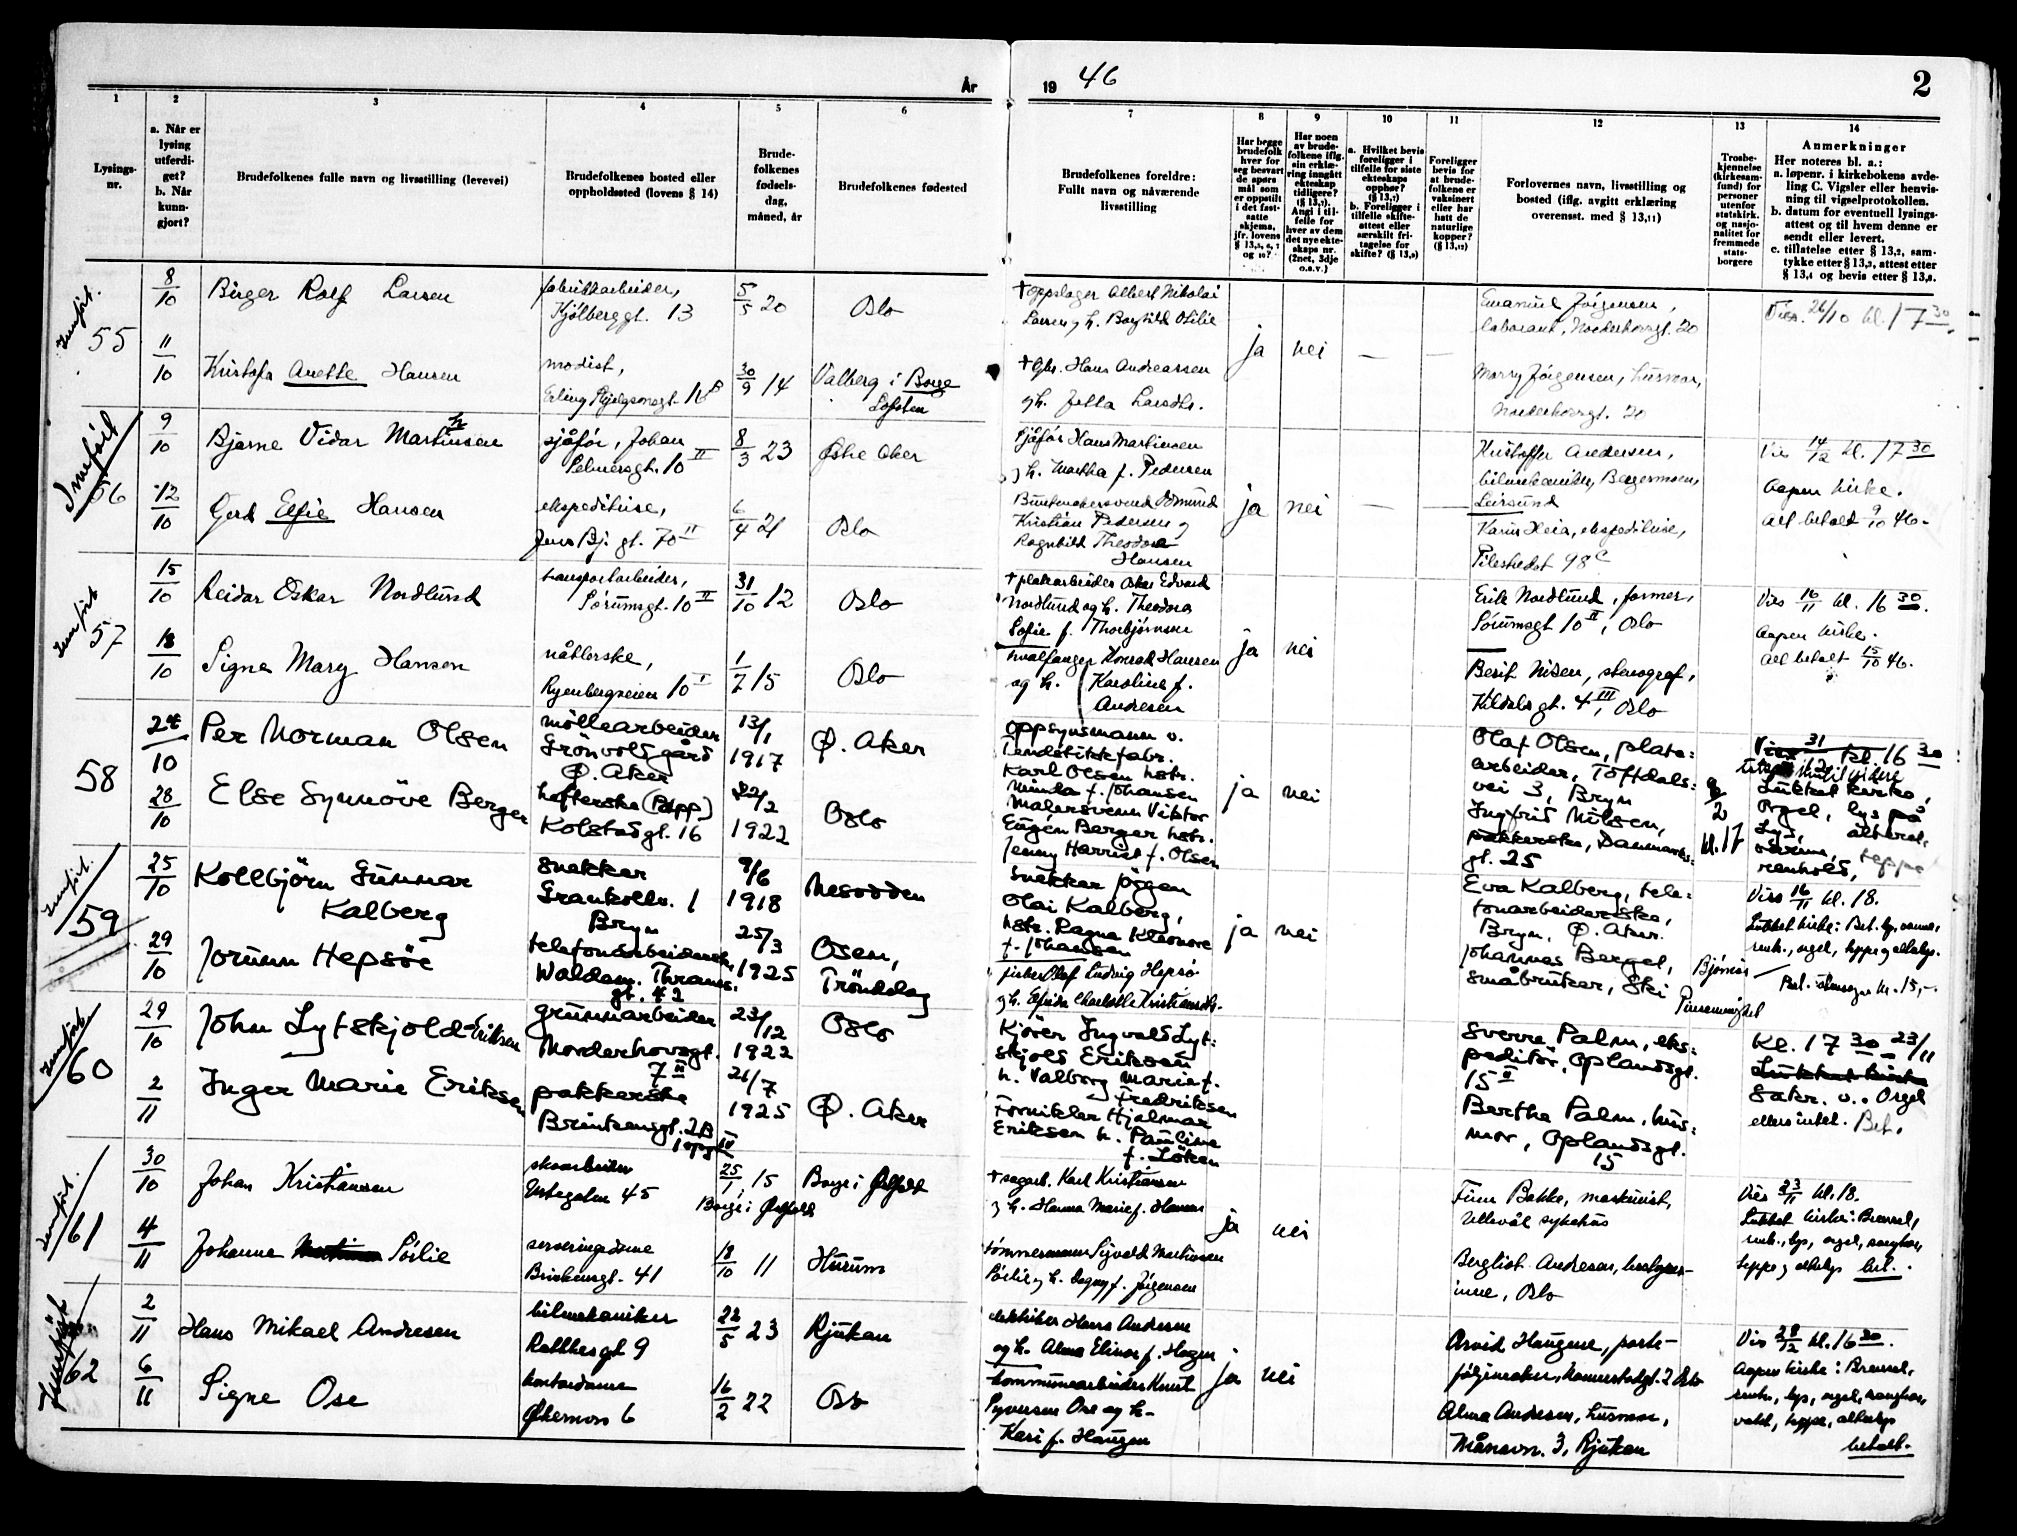 År
19 46
2
1
2
3
4
5
6
7
8
9
10
11
12
13
14
Lysings-
nr.
a. Når er
lysing
utferdi-
get?
b. Når
kunn-
gjort?
Brudefolkenes fulle navn og livsstilling (levevei)
Brudefolkenes bosted eller
oppholdssted (lovens § 14)
Brude-
folkenes
fødsels-
dag,
måned, år
Brudefolkenes fødested
Brudefolkenes foreldre:
Fullt navn og nåværende
livsstilling
Har begge
brudefolk
hver for
seg besvart
de spørs-
mål som
er oppstilt
i det fast-
satte
skjema,
jfr. lovens
Har noen
av brude-
folkene iflg.
sin erklæ-
ring inngått
ekteskap
tidligere?
(§ 13,7)
Angi i til-
felle for
hver av dem
det nye ekte-
skaps nr.
(2net, 3dje
o.s.v.)
a. Hvilket bevis
foreligger i
tilfelle for siste
ekteskaps
opphør?
(§ 13,7)
b. Foreligger i
tilfelle skifte-
attest eller
særskilt fri-
tagelse for
skifte? (§ 13,9)
Foreligger
bevis for
at brude-
folkene er
vaksinert
eller har
hatt de
naturlige
kopper?
(§ 13,12)
Forlovernes navn, livsstilling og
bosted (iflg. avgitt erklæring
overensst. med § 13,11)
Trosbe-
kjennelse
(kirkesam-
fund) for
personer
utenfor
statskirk.
og nasjo-
nalitet for
fremmede
stats-
borgere
Anmerkninger
Her noteres bl. a.:
a. løpenr. i kirkebokens avde-
ling C. Vigsler eller henvis-
ning til vigselprotokollen.
b. datum for eventuell lysings-
attest og til hvem denne er
sendt eller levert.
c. tillatelse etter § 13,2, sam-
tykke etter § 13,3, attest etter
§ 13,4 og bevis etter § 13,8.
Innført.
55
8/10
Birger Rolf Larsen
fabrikkarbeider,
Kjølberggt. 13
5/5 20
Oslo
† Oppslager Albert Nikolai
Larsen g h. Borghild Otilie
ja
nei
Emanuel Jörgensen,
laborant, Norderhovgt. 20
Vies. 26/10 kl. 17 30
11/10
Kristofa Anette Hansen
modist,
Erling Skjalgsonsgt.
30/9 14
Valberg i Borge
Lofoten
† Gbr. Hans Andreassen
g h. Jetta Larsdtr.
Marry Jörgensen, husmor,
Norderhovgt. 20
Innført
56
9/10
Bjarne Vidar Martinsen
sjåför, Johan
Selmersgt. 10 II
8/3 23
Østre Aker
Sjåför Hans Martinsen
g h. Martha f. Pedersen
ja
nei
Kristoffer Andersen,
bilmekaniker, Bergermoen,
Leirsund
Vies 14/12 kl. 17 30
Aapen kirke.
Alt betalt 9/10 46.
12/10
Gerd Elfie Hansen
ekspeditrise,
Jens Bj. gt. 70 II
6/4 21
Oslo
Buntmakersvend Odmund
Kristian Pedersen g
Ragnhild Theodora
Hansen
Karin Heia, ekspeditrise,
Pilestredet 98 c
Innført
57
15/10
Reidar Oskar Nordlund
transportarbeider,
Sörumsgt. 10 II
31/10 12
Oslo
† platearbeider Oskar Edvard
Nordlund og h. Theodora
Sofie f. Thorbjørnsen
ja
nei
Erik Nordlund, former,
Sörumsgt 10 II, Oslo
Vies 16/11 kl. 16 30.
Aapen kirke.
Alt betalt 15/10 46.
18/10
Signe Mary Hansen
nåtlerske,
Ryenbergveien 10 I
1/7 15
Oslo
hvalfanger Konrad Hansen
og h. Karoline f.
Andresen
Berit Nilsen, stenograf,
Kildals gt. 4 III, Oslo
58
24/10
Per Norman Olsen
möllearbeider
Grönvolds gård
Ø. Aker
13/1
1917
Ø. Aker
Oppsynsmann v.
Tendstikkfabr.
Karl Olsen hstr.
Minda f. Johansen
ja
nei
Olaf Olsen, plate=
arbeider, Toftdals=
vei 3, Bryn
2
kl. 17
Vies 31 kl. 16 30
Lukket kirke,
Orgel, lys på
Lys, alteret,
varme, teppe
renhold,
28/10
Else Synnöve Berger
hefterske (Papp)
Kolstadgt. 16
22/2
1922
Oslo
Malersvenn Viktor
Eugén Berger hstr.
Jenny Harriet f. Olsen
Ingfrid Nilsen,
pakkerske, Danmarks=
gt. 25
Innført.
59
25/10
Kollbjörn Gunnar
Kalberg
Snekker
Grankollv. 1
Bryn
9/6
1918
Nesodden
Snekker Jörgen
Olai Kalberg,
hstr. Ragna Kleonore
f. Johansen
ja
nei
Eva Kalberg, tele=
fonarbeiderske,
Bryn, Ø. Aker.
Vies 16/11 kl. 18.
Lukket kirke: Bet. lys, varme,
renh., orgel, teppe g alterlys.
29/10
Jorunn Hepsöe
telefonarbeiderske
Waldem. Thranes.
gt. 42
25/3
1925
Osen,
Tröndelag
fisker Olaf Ludvig Hepsö
g h. Elfrida Charlotte Kristiansdtr.
Johannes Bergel,
småbruker, Ski
Innført
60
29/10
John Lytskjold-Eriksen
grunnarbeider
Norderhovsgt.
7 III
23/12
1922
Oslo
Kjörer Ingvald Lyt=
skjold Eriksen
h. Valborg Marie f.
Fredriksen
Sverre Palm, eks=
peditör, Oplandsgt.
15 II
Kl. 17 30 23/11
Lukket kirke
Sakr. o. Orgel
ellers intet. Bet.
2/11
Inger Marie Eriksen
pakkerske
Brinkensgt. 2B
1 opg IV
26/7
1925
Ø. Aker
Fornikler Hjalmar
Eriksen h. Pauline
f. Löken
Bertha Palm, hus=
mor, Oplandsgt.
15
Innført.
61
30/10
Johan Kristiansen
skoarbeider
Urtegaten 45
25/1 15
Borge i Østfold
Borge i Østfold
† sagarb. Karl Kristiansen
g h. Hanna Marie f. Hansen
ja
nei
Finn Bakke, maskinist,
Ullevål sykehus
Vies 23/11 kl. 18.
Lukket kirke: Brensel,
renh., lys, orgel,
teppe g alterlys bet.
4/11
Johanne Sörlie
serveringsdame
Brinkensgt. 41
18/10 11
Hurum
tömmermann Sigvald Martinsen
Sörlie g h. Dagny f. Jörgensen
Bergliot Andresen, bestyrer-
inne, Oslo
Innført
62
2/11
Hans Mikael Andresen
bilmekaniker
Rathkesgt 9
22/5 23
Rjukan
elektriker Hans Andresen
og h. Alma Elinor f. Hagen
ja
nei
Arvid Haugene, porte-
føljemaker, 2 Oslo
Vies 28/12 kl. 16 30.
Aapen kirke: Brensel,
renh., lys, orgel,
vakt, teppe, alterlys
betalt.
6/11
Signe Ose
kontordame
Økernvn 6
16/2 22
Oslo
kommunearbeider Knut
Syversen Ose og h.
Kari f. Haugen
Alma Andresen, husmor,
Månavn. 3, Rjukan